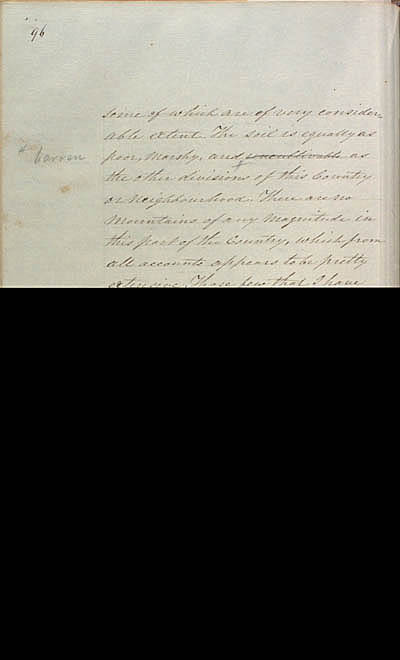 96
some of which are of very consider-
able extent. The soil is equally as
+ barren
poor, Marshy, and + uncultivable as
the other divisions of this Country
or Neighbourhood. There are no
Mountains of any Magnitude in
this part of the Country, which from
all accounts appears to be pretty
extensive. Those few that I have